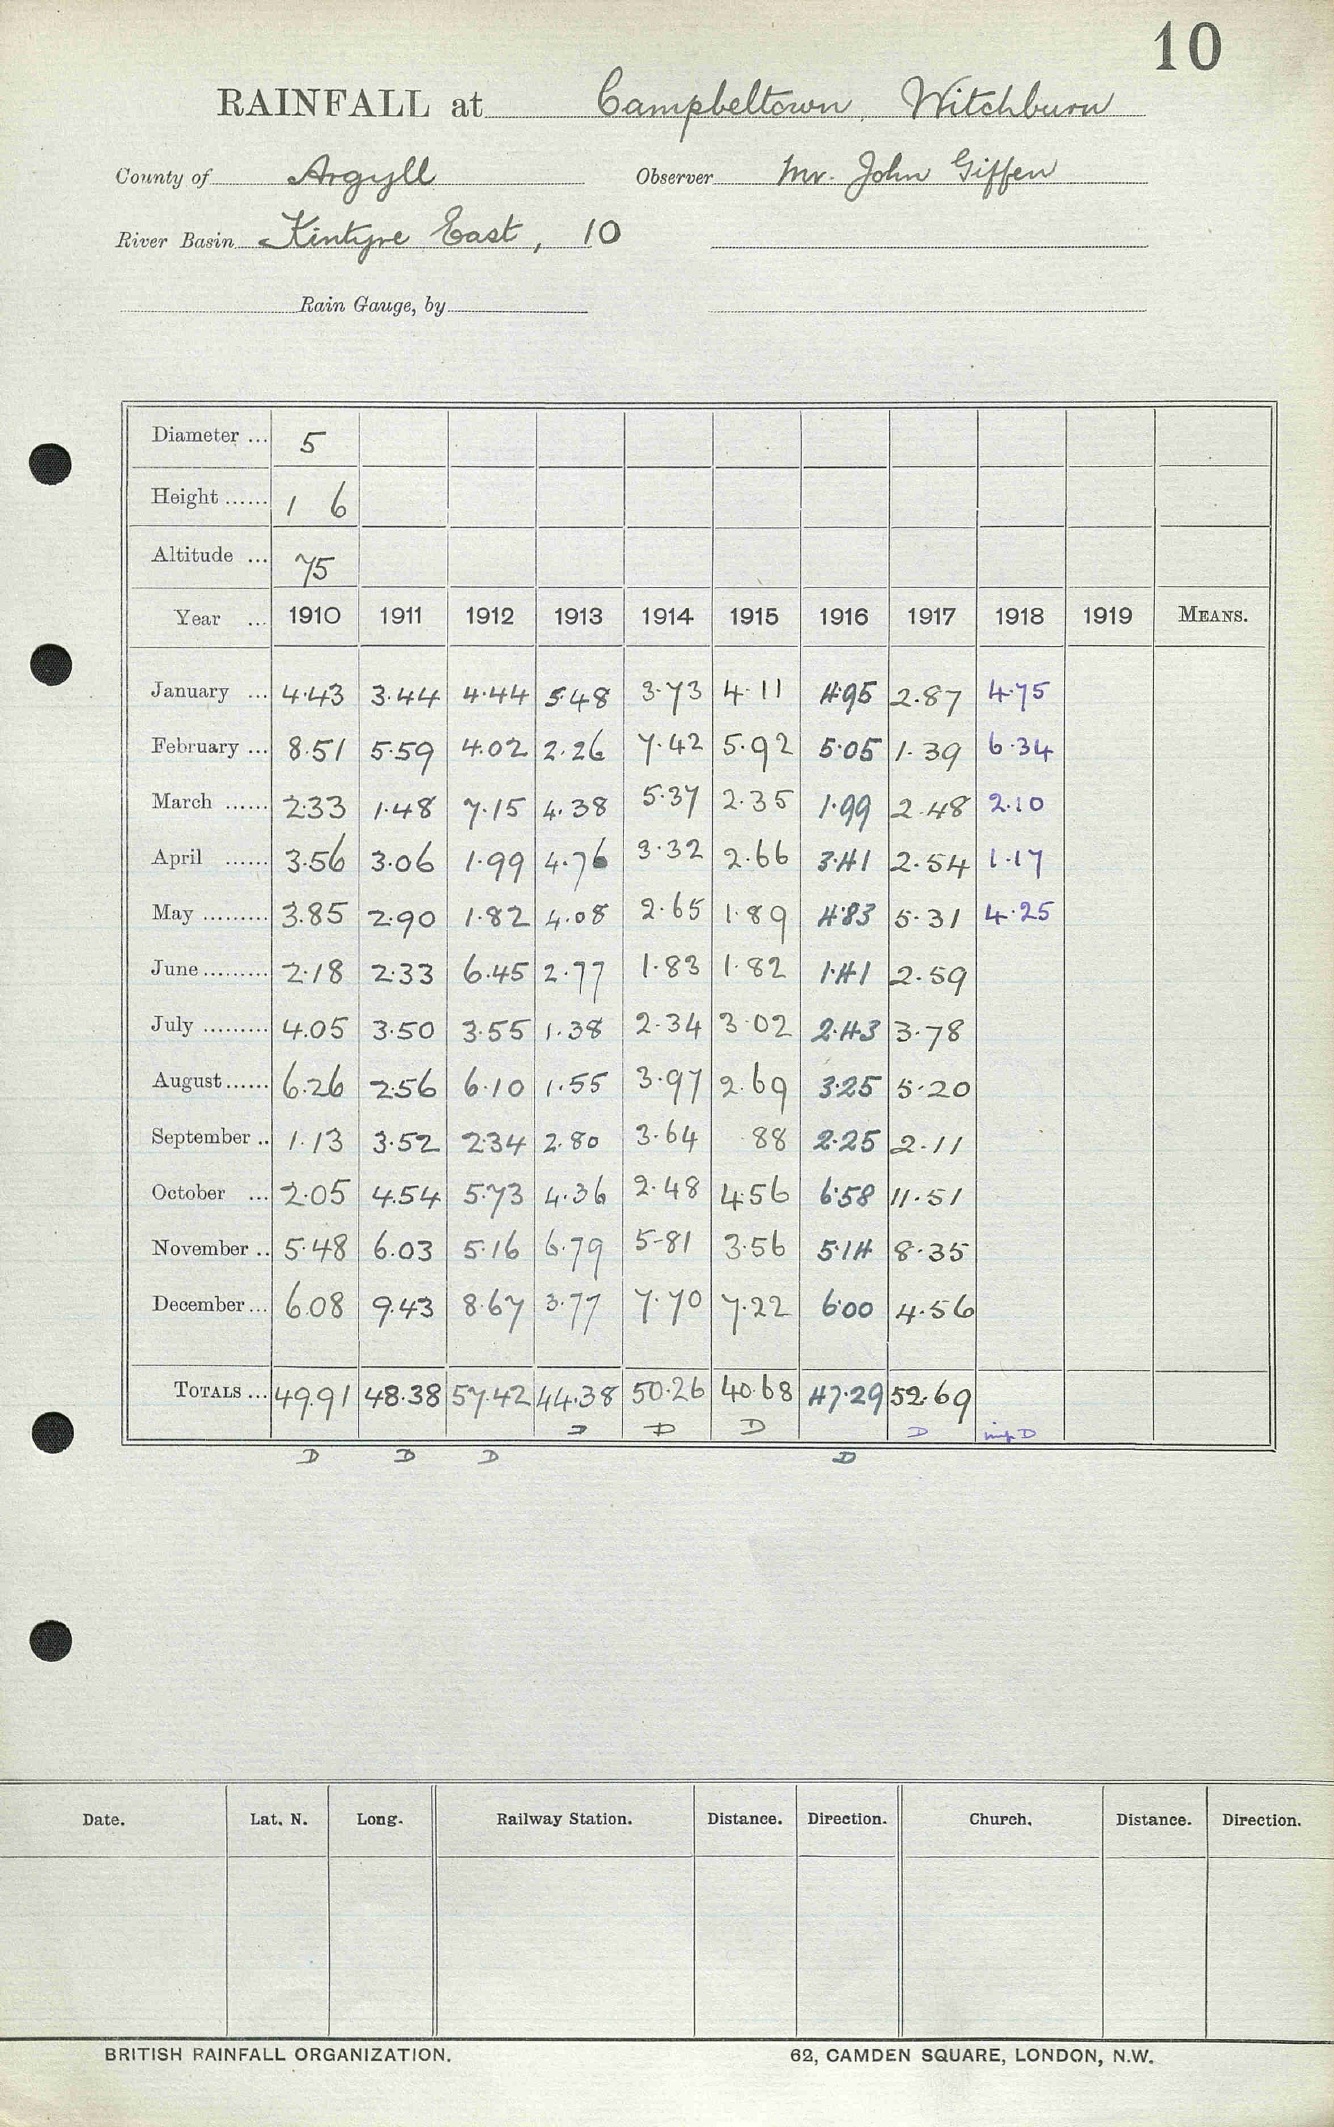 10
RAINFALL at Campbeltown, Witchburn
County of Argyll Observer Mr. John Giffen
River Basin Kintyre East, 10
Rain Gauge, by
Diameter ... 5
Height ...... 1 6
Altitude ... 75
Year ... 1910 1911 1912 1913 1914 1915 1916 1917 1918 1919 MEANS.
January ... 4.43 3.44 4.44 5.48 3.73 4.11 4.95 2.87 4.75
February ... 8.51 5.59 4.02 2.26 7.42 5.92 5.05 1.39 6.34
March ...... 2.33 1.48 7.15 4.38 5.37 2.35 1.99 2.48 2.10
April ...... 3.56 3.06 1.99 4.76 3.32 2.66 3.41 2.54 1.17
May ......... 3.85 2.90 1.82 4.08 2.65 1.89 4.83 5.31 4.25
June ......... 2.18 2.33 6.45 2.77 1.83 1.82 1.41 2.59
July ......... 4.05 3.50 3.55 1.38 2.34 3.02 2.43 3.78
August ...... 6.26 2.56 6.10 1.55 3.97 2.69 3.25 5.20
September .. 1.13 3.52 2.34 2.80 3.64 .88 2.25 2.11
October ... 2.05 4.54 5.73 4.36 2.48 4.56 6.58 11.51
November .. 5.48 6.03 5.16 6.79 5.81 3.56 5.14 8.35
December ... 6.08 9.43 8.67 3.77 7.70 7.22 6.00 4.56
TOTALS ... 49.91 48.38 57.42 44.38 50.26 40.68 47.29 52.69
D D D D imp D
D D D D
Date. Lat. N. Long. Railway Station. Distance. Direction. Church. Distance. Direction.
BRITISH RAINFALL ORGANIZATION. 62, CAMDEN SQUARE, LONDON, N.W.